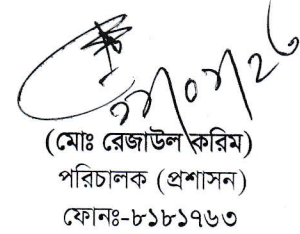 (মোঃ রেজাউল করিম)
পরিচালক (প্রশাসন)
ফোনঃ-৮১৮১৭৬৩